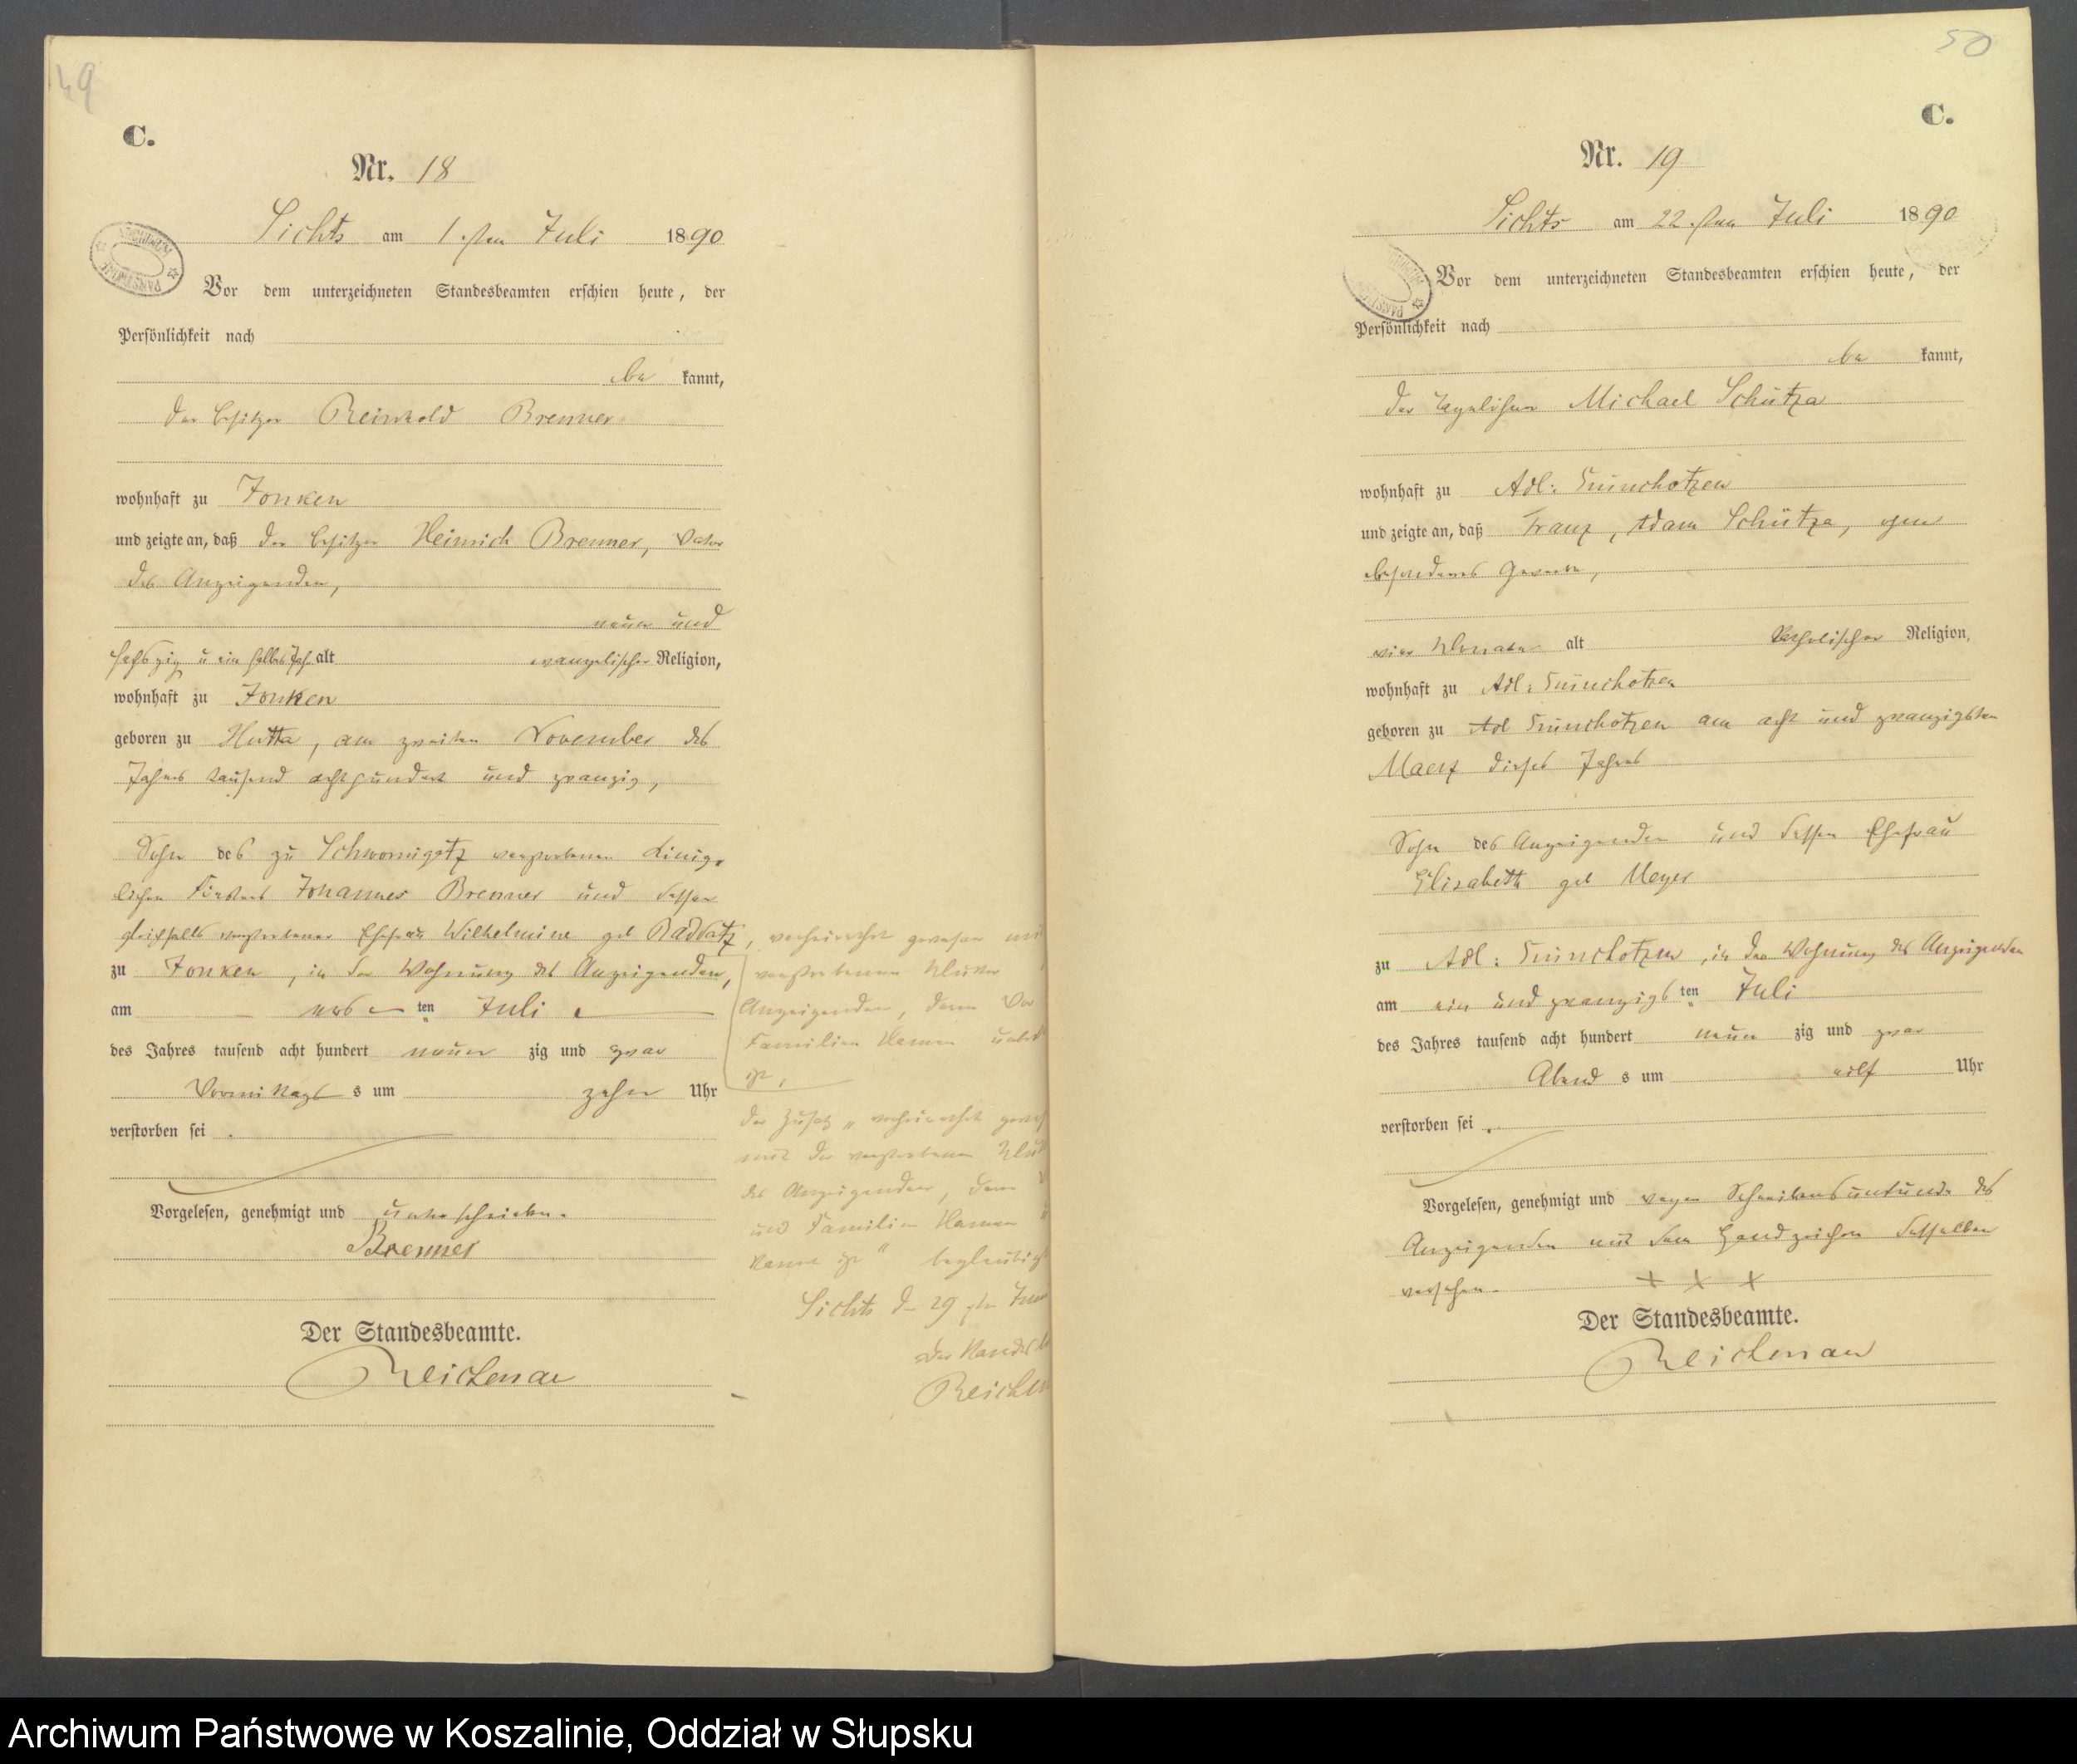 49
C.
Nr. 18
Lichts am 1. ten Juli 1890
Vor dem unterzeichneten Standesbeamten erschien heute, der
Persönlichkeit nach
be kannt,
der Besitzer Reinhold Brenner
wohnhaft zu Jonken
und zeigte an, daß der Besitzer Heinrich Brenner, Vater
des Anzeigenden,
neun und
sechszig u ein halbes Jahr alt evangelischer Religion,
wohnhaft zu Jonken
geboren zu Hutta, am zweiten November des
Jahres tausend achthundert und zwanzig,
Sohn des zu verstorbenen König-
lichen Försters Johannes Brenner und dessen
gleichfalls verstorbener Ehefrau Wilhelmine geb Raddatz, verheirathet gewesen mi
zu Jonken, in der Wohnung des Anzeigenden,
verstorbenen Mutter
am ersten ten Juli
Anzeigenden, deren Vor
des Jahres tausend acht hundert neun zig und zwar
Familien Namen unbek
ist,
Vormittags s um zehn Uhr
der Zusatz „verheirathet gewes
verstorben sei.
mit der verstorbenen Mut
des Anzeigenden, deren V
Vorgelesen, genehmigt und unterschrieben.
und Familien Namen
Brenner
kannt ist" beglaubigt
Lichts d 29 ten
Der Standesbeamte.
der Standesb
Reichenau
Reichen
50
C.
Nr. 19
Lichts am 22. ten Juli 1890
Vor dem unterzeichneten Standesbeamten erschien heute, der
Persönlichkeit nach
be kannt,
der Michael Schütza
wohnhaft zu Adl:
und zeigte an, daß Franz, Adam Schütza, ohne
besonderes Gewerbe,
vier Monate alt katholischer Religion,
wohnhaft zu Adl:
geboren zu Adl am acht und zwanzigsten
Maerz dieses Jahres
Sohn des Anzeigenden und dessen Ehefrau
Elisabeth geb Meyer
zu Adl: , in der Wohnung des Anzeigenden
am ein und zwanzigs ten Juli
des Jahres tausend acht hundert neun zig und zwar
Abend s um elf Uhr
verstorben sei.
Vorgelesen, genehmigt und wegen Schreibensunkunde des
Anzeigenden mit dem Handzeichen desselben
versehen. + + +
Der Standesbeamte.
Reichenau
Archiwum Państwowe w Koszalinie, Oddział w Słupsku